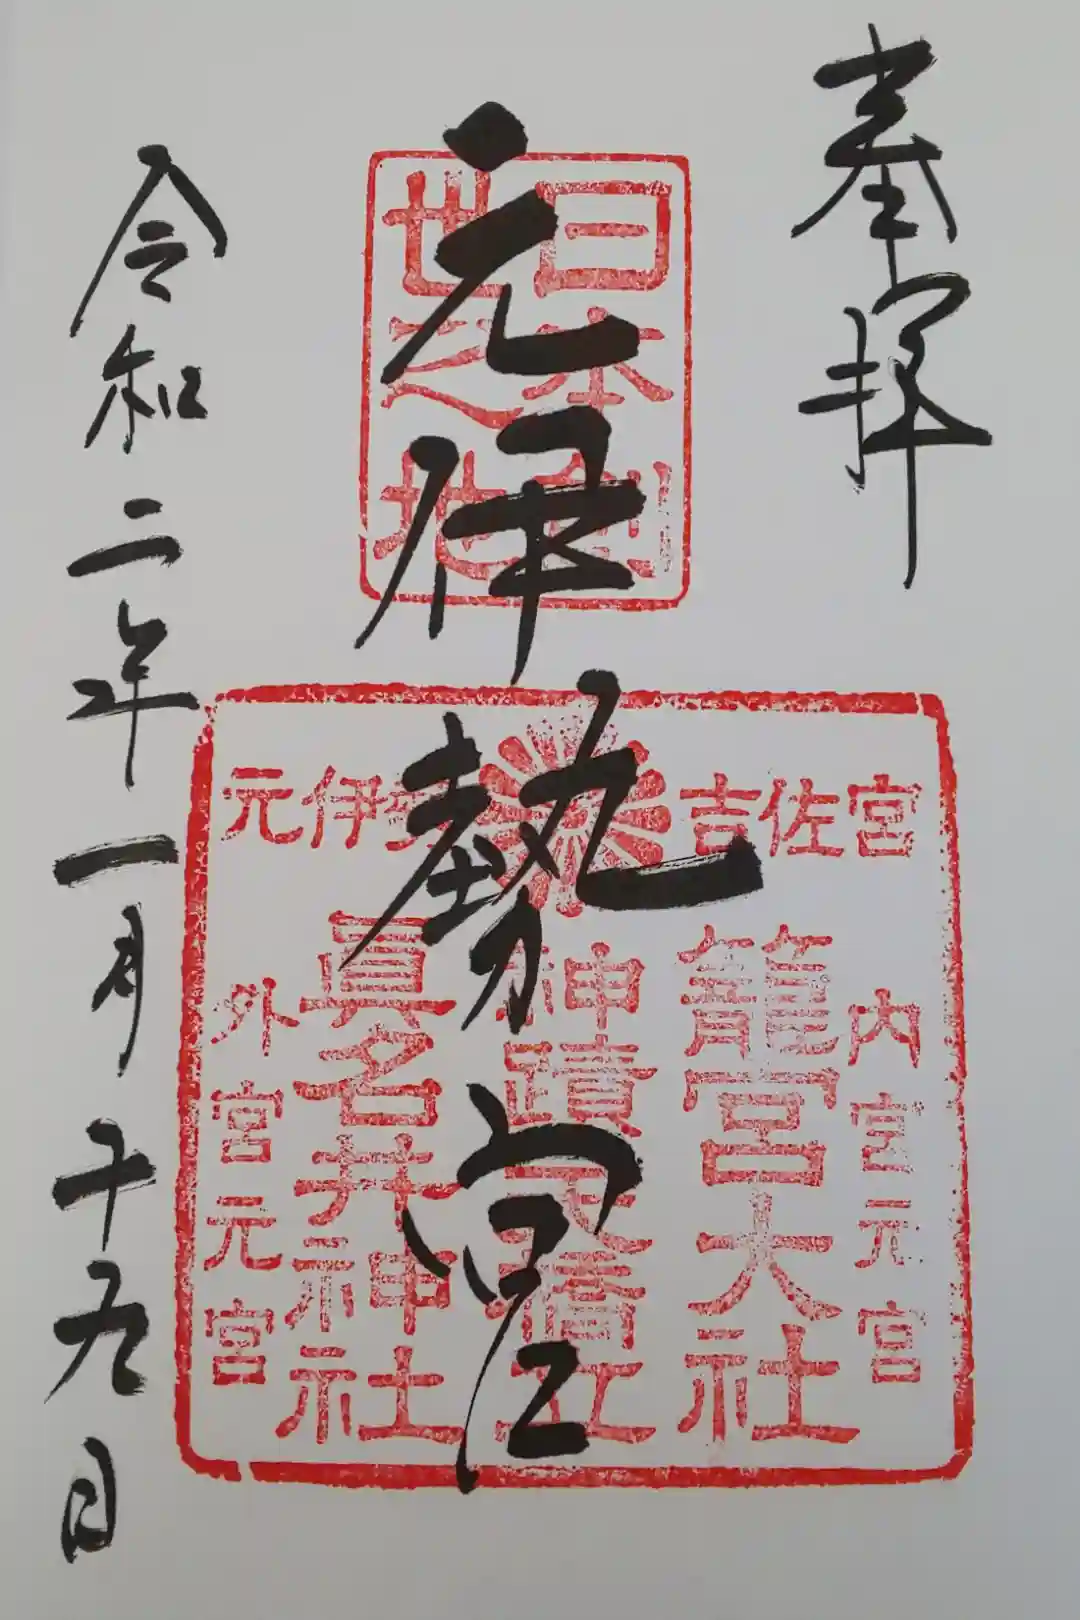 奉拝
元伊勢宮
令和二年一月十九日
日本創
世之地
元伊勢 吉佐宮
内宮元宮
籠宮大社
神蹟天橋立
眞名井神社
外宮元宮